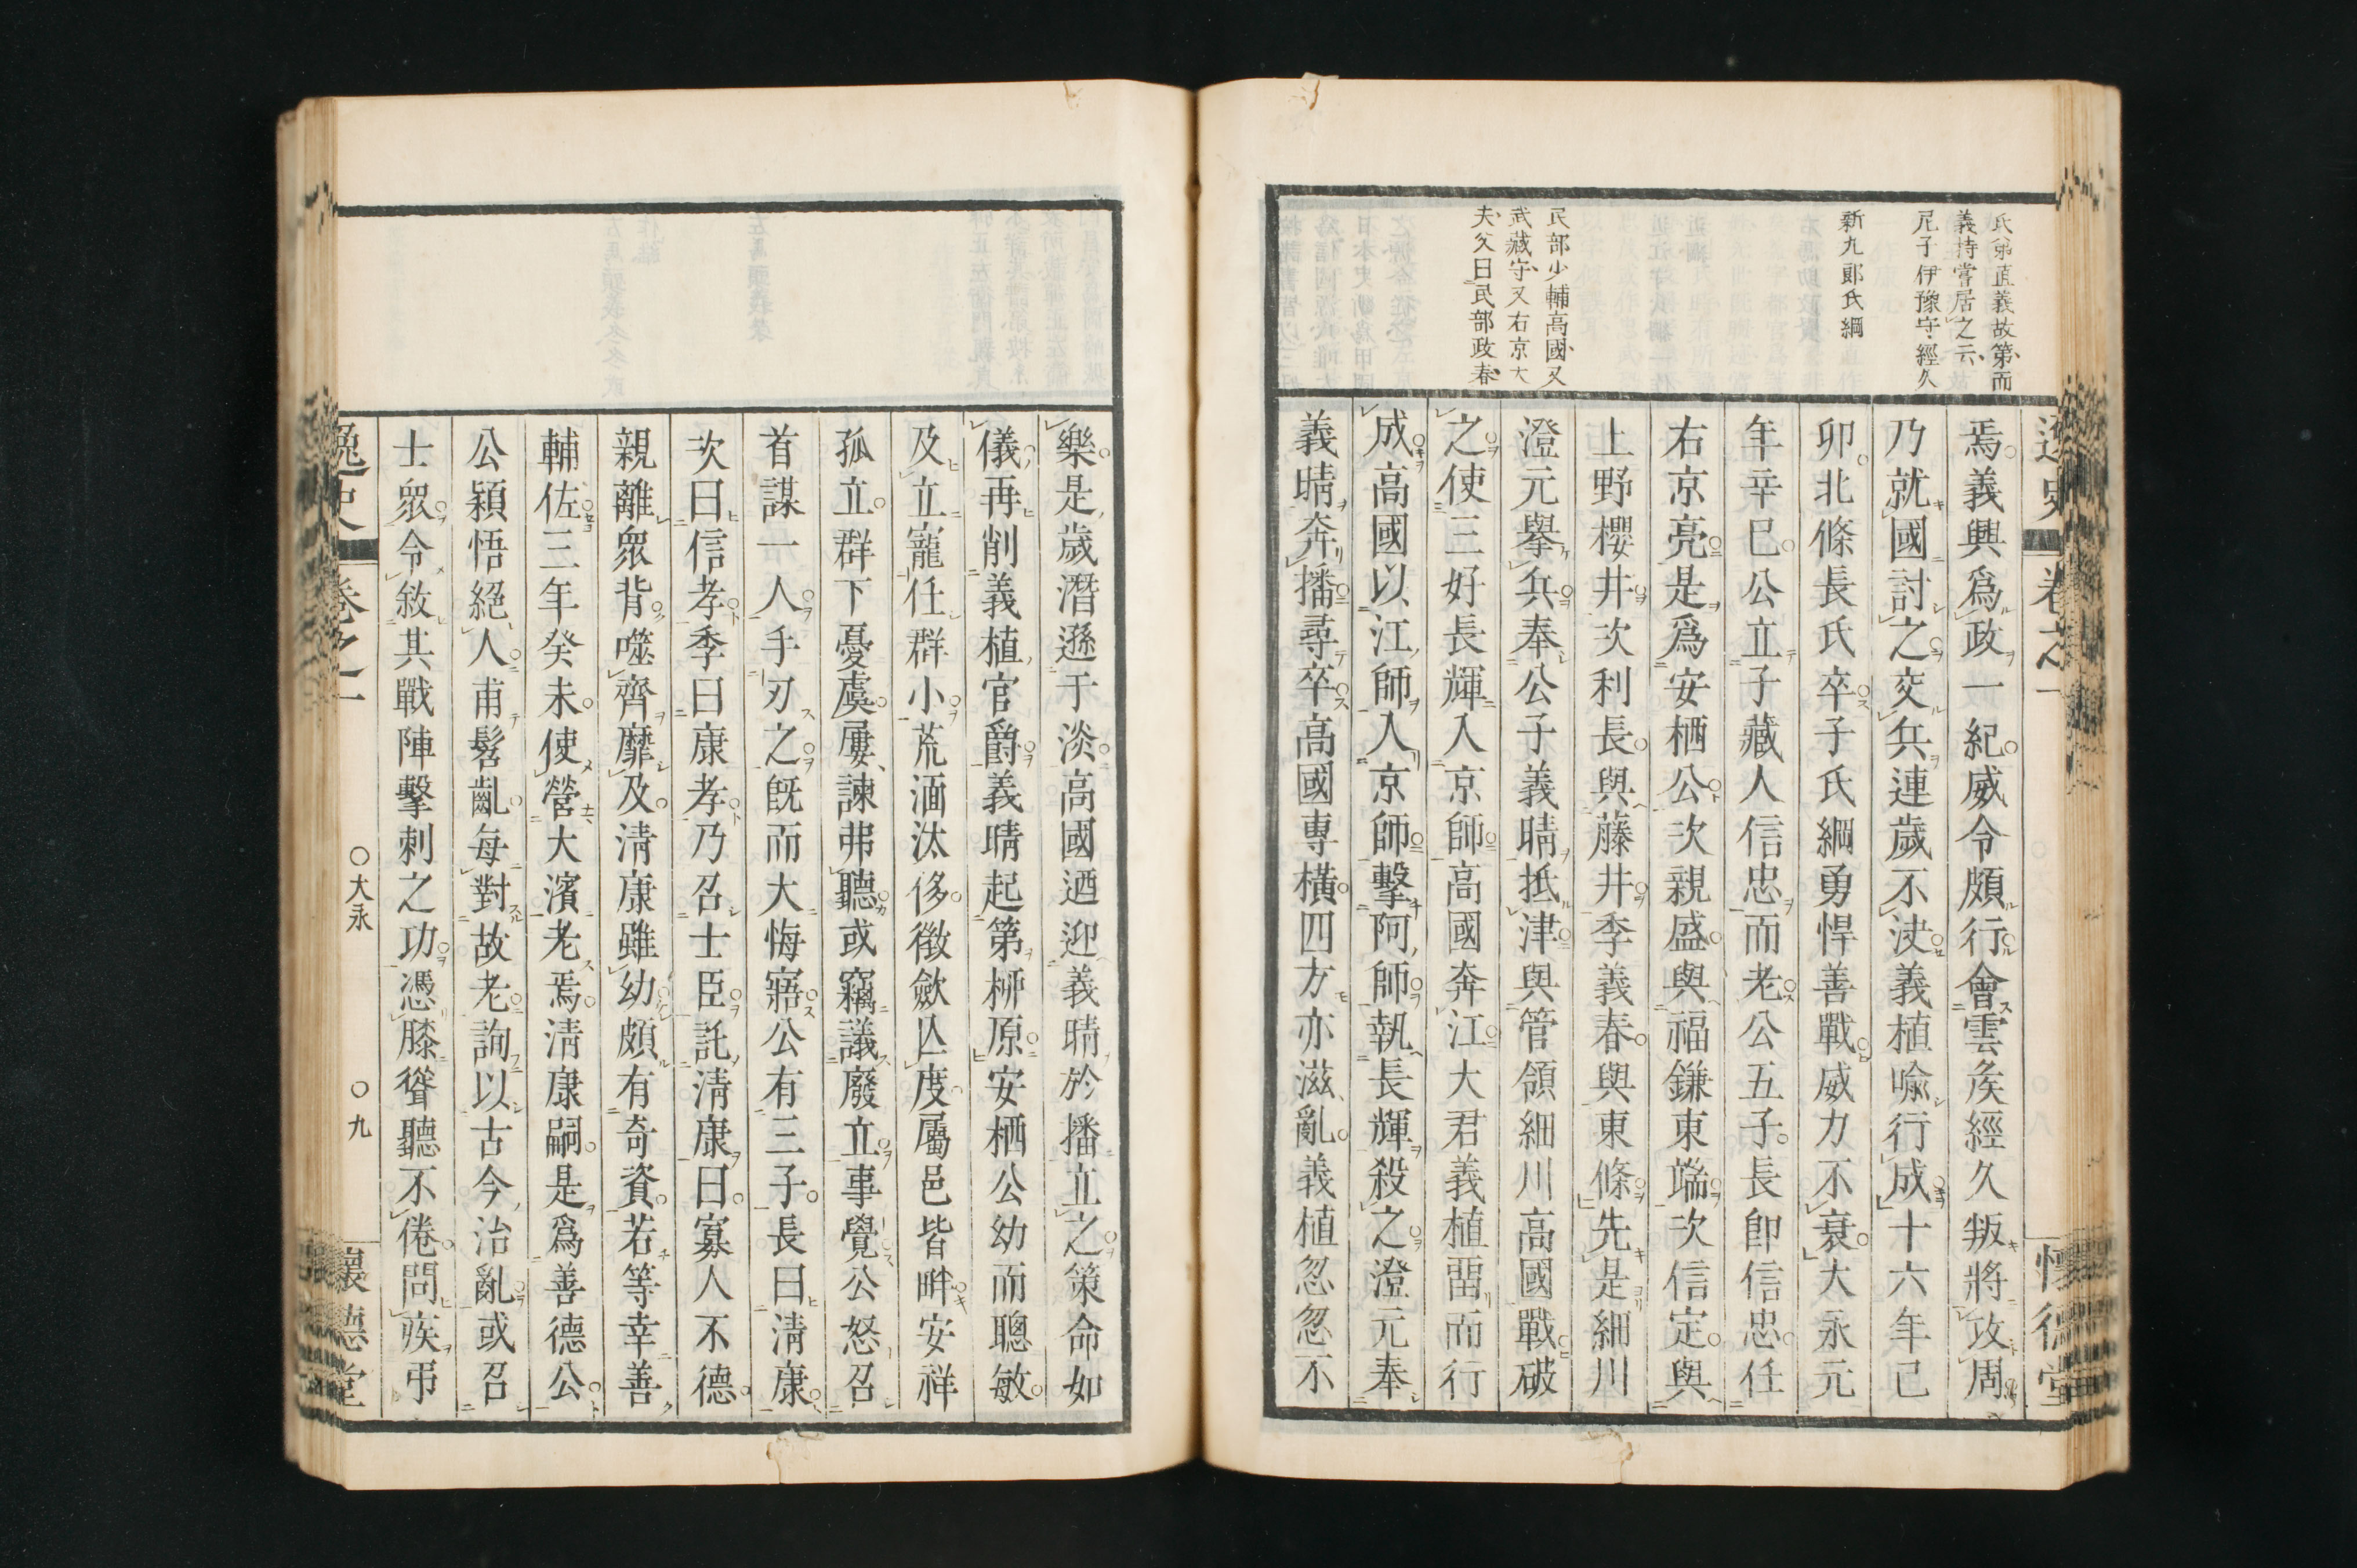 氏弟直義故第而
義持嘗居之云
尼子伊豫守經久
新九郎氏綱
民部少輔高國又
武藏守又右京大
夫父曰民部政春
焉義興爲政一紀威令頗行會雲矦經久叛將攻周
乃就國討之交兵連歲不决義植喩行成十六年己
卯北條長氏卒子氏綱勇悍善戰威力不衰大永元
年辛巳公立子藏人信忠而老公五子長卽信忠任
右京亮是爲安栖公次親盛與福鎌東端次信定與
上野櫻井次利長與藤井季義春與東條先是細川
澄元擧兵奉公子義晴抵津與管領細川高國戰破
之使三好長輝入京師高國奔江大君義植畱而行
成高國以江師入京師擊阿師執長輝殺之澄元奉
義晴奔播尋卒高國專橫四方亦滋亂義植忽忽不
樂是歲潛遜于淡高國迺迎義晴於播立之策命如
儀再削義植官爵義晴起第柳原安栖公幼而聰敏
及立寵任群小荒湎汰侈徵斂亾度屬邑皆畔安祥
孤立群下憂虞屢諫弗聽或竊議廢立事覺公怒召
首謀一人手刃之既而大悔寤公有三子長曰淸康
次曰信孝季曰康孝乃召士臣託淸康曰寡人不德
親離衆背噬齊靡及淸康雖幼頗有奇資若等幸善
輔佐三年癸未使營大濱老焉淸康嗣是爲善德公
公穎悟絕人甫髫齓每對故老詢以古今治亂或召
士衆令敘其戰陣擊刺之功憑膝聳聽不倦問疾弔
逸史 卷之一
〇大永
〇九
懷德堂